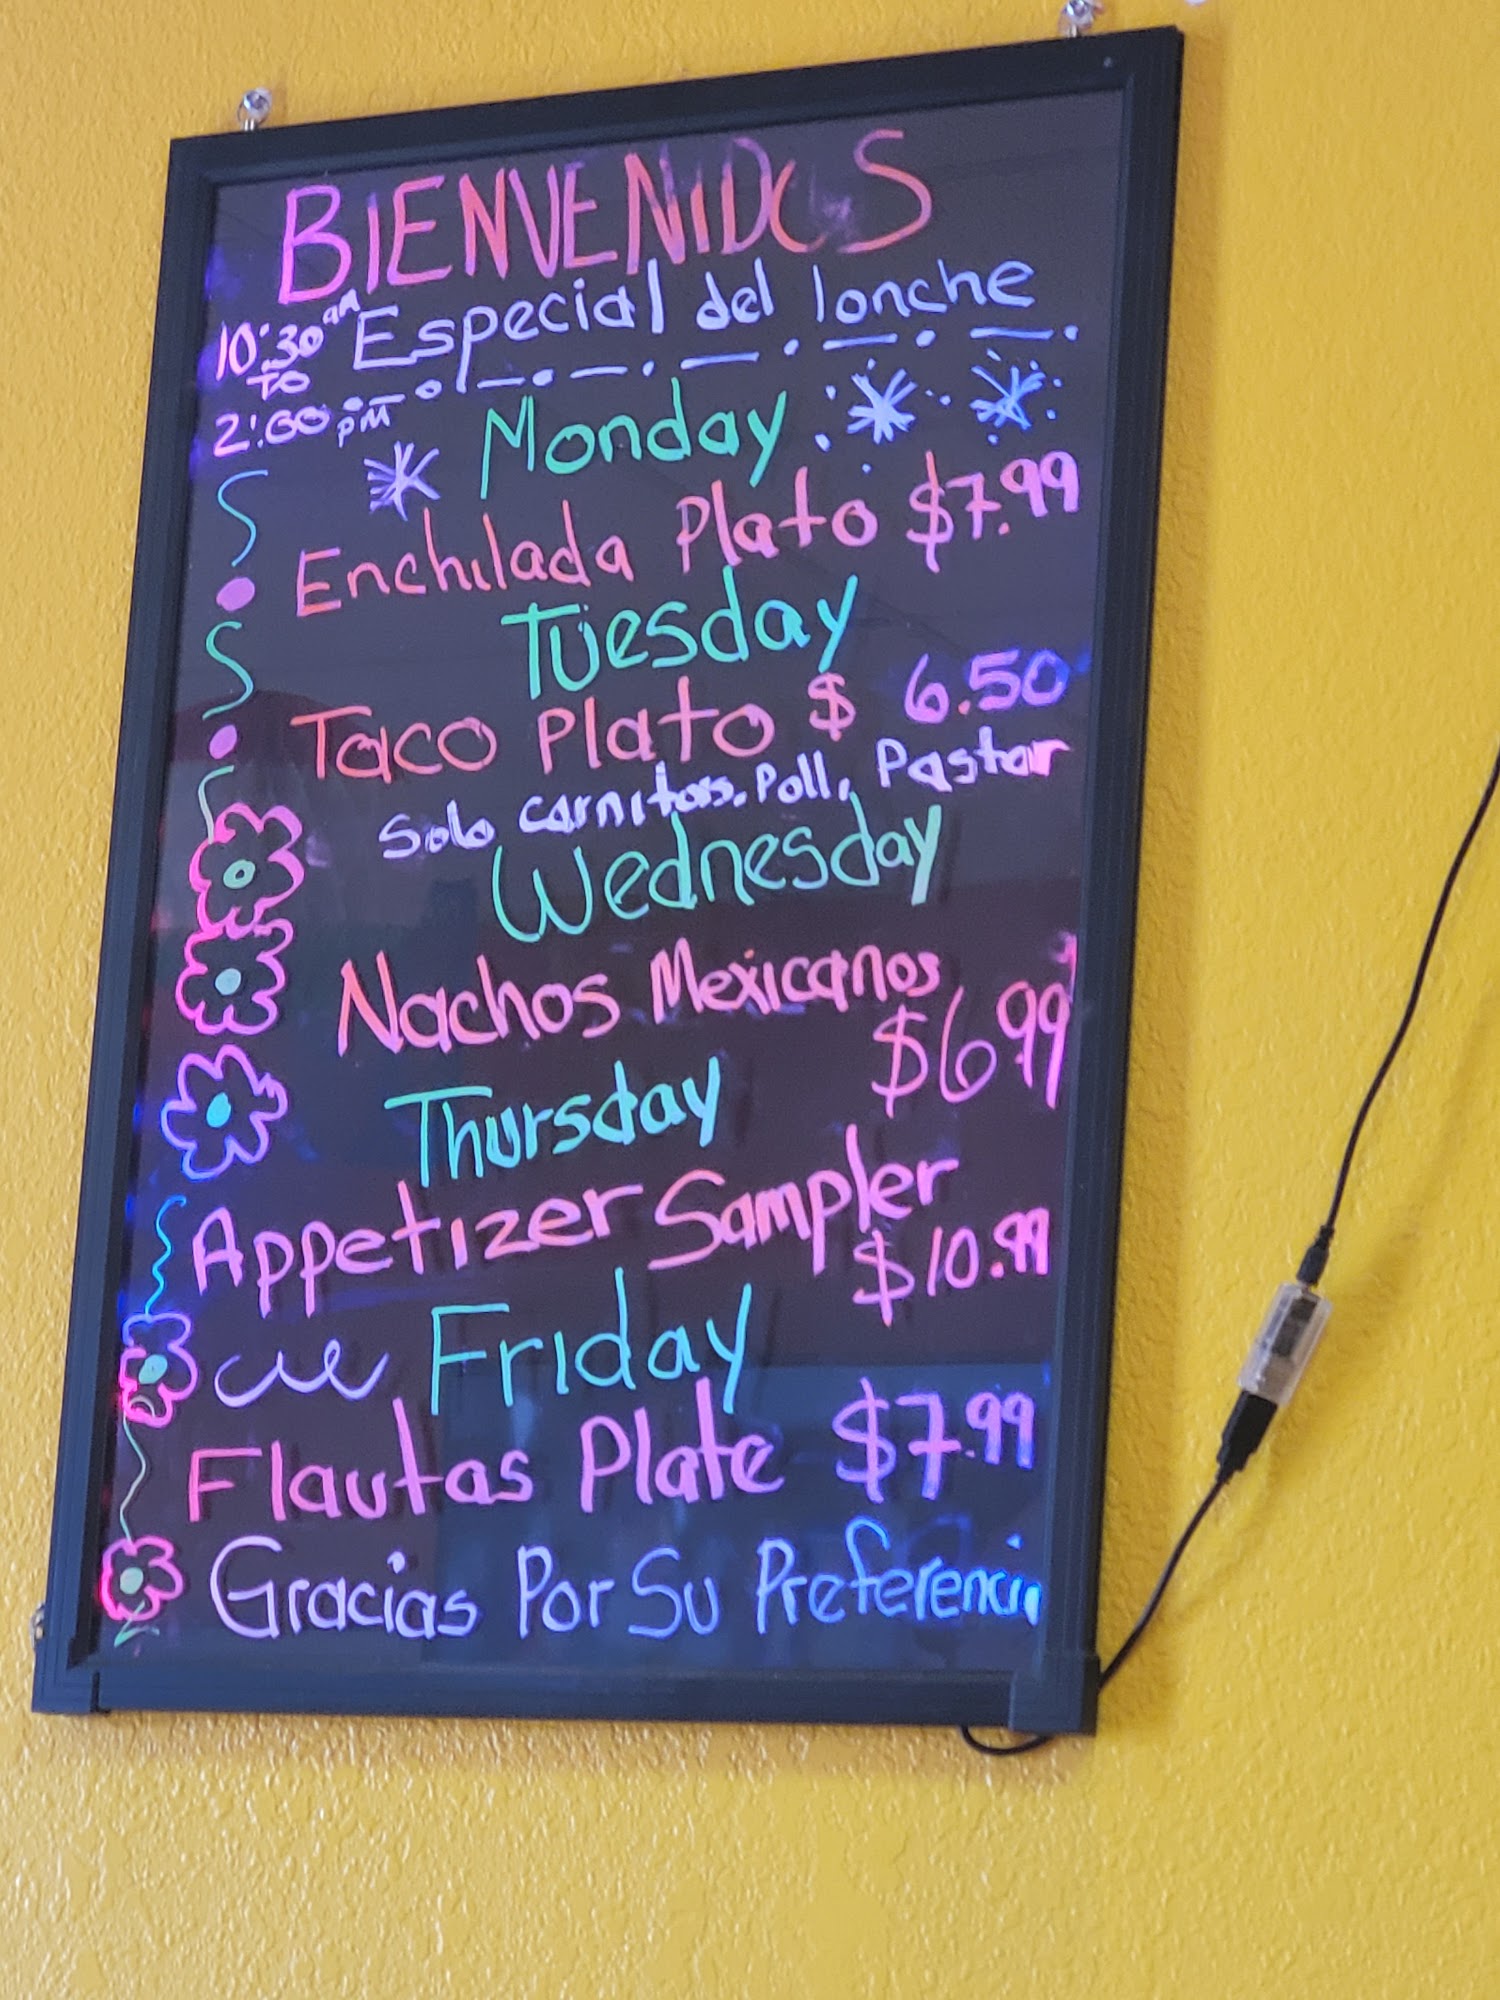 BIENVENIDOS
10:30 am Especial del lonche
TO
2:00 pm
Monday
Enchilada Plato $7.99
Tuesday
Taco Plato $ 6.50
Solo carnitas. Poll, Pastor
Wednesday
Nachos Mexicanos
$6.99
Thursday
Appetizer Sampler
$10.99
Friday
Flautas Plate $7.99
Gracias Por Su Preferencia